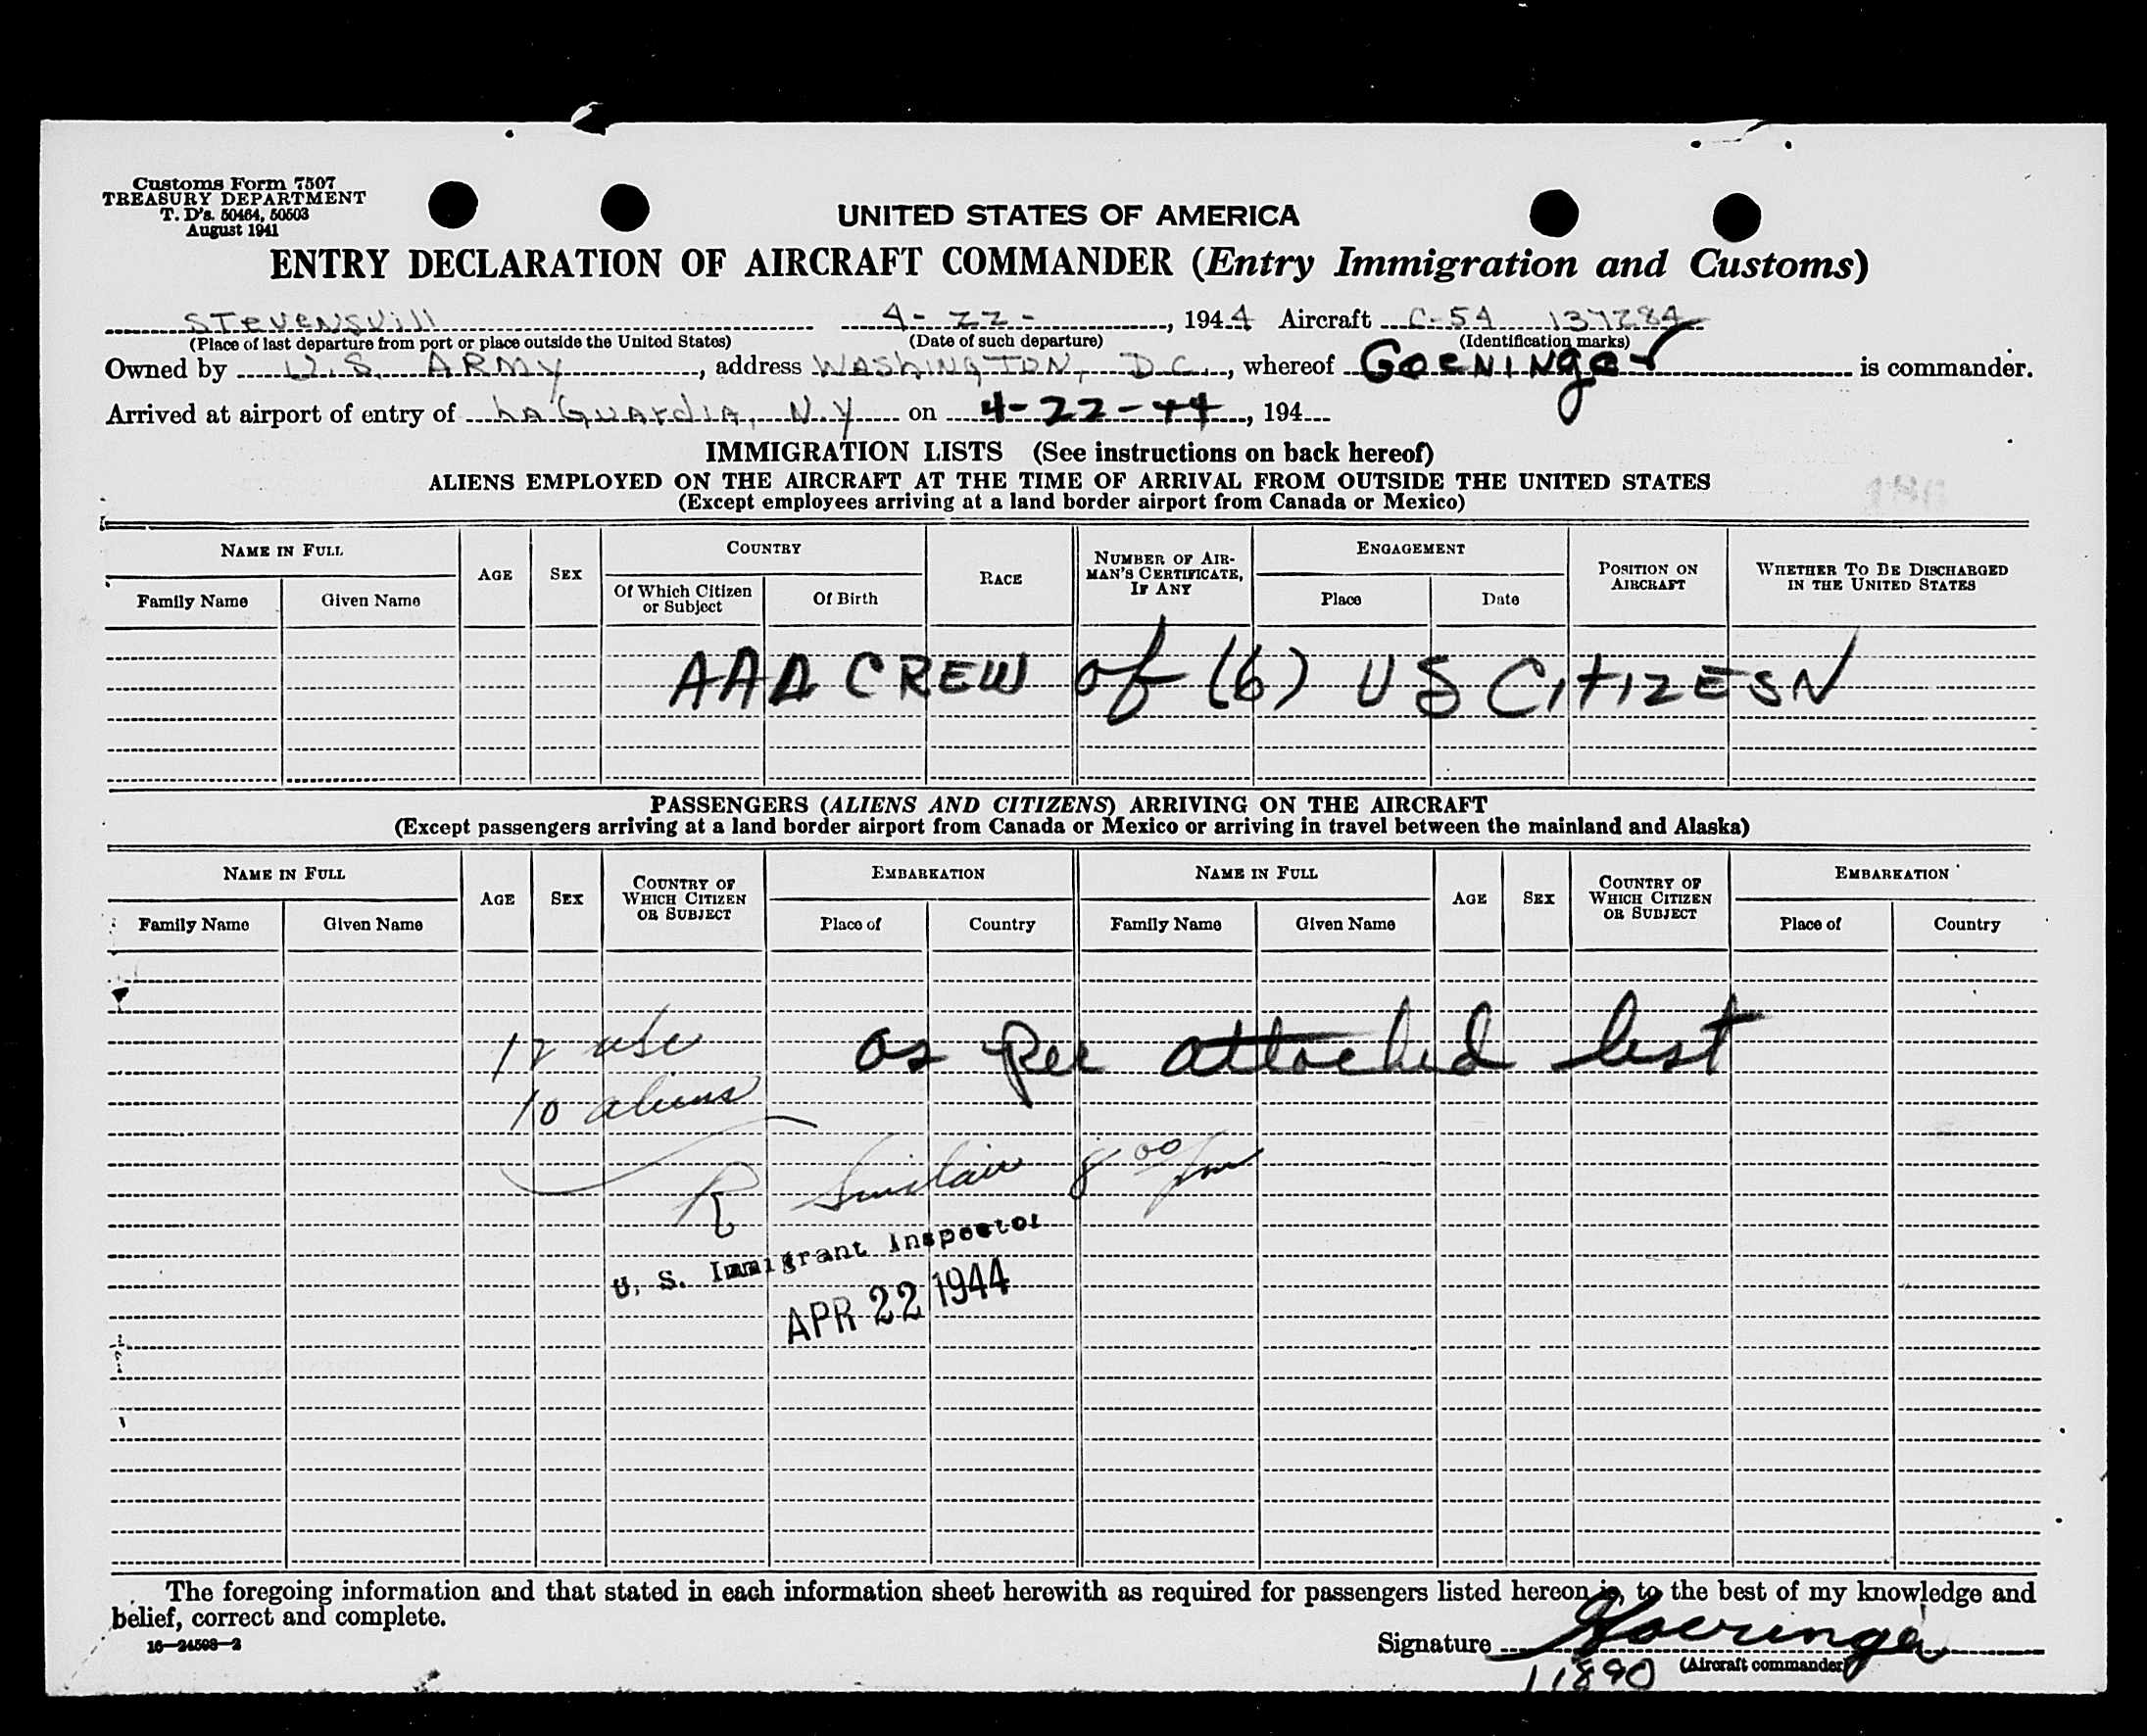 Customs Form 7507
TREASURY DEPARTMENT
T. D's. 50464, 50503
August 1941
UNITED STATES OF AMERICA
ENTRY DECLARATION OF AIRCRAFT COMMANDER (Entry Immigration and Customs)
STevensvill 4-22-, 1944 Aircraft C-54 137284
(Place of last departure from port or place outside the United States) (Date of such departure) (Identification marks)
Owned by U.S. ARMY, address WAShINGTON, D.C., whereof GOENINger is commander.
Arrived at airport of entry of LA GuArdIA, N.Y on 4-22-44, 194
IMMIGRATION LISTS (See instructions on back hereof)
ALIENS EMPLOYED ON THE AIRCRAFT AT THE TIME OF ARRIVAL FROM OUTSIDE THE UNITED STATES
(Except employees arriving at a land border airport from Canada or Mexico)
NAME IN FULL AGE SEX COUNTRY RACE NUMBER OF AIRMAN'S CERTIFICATE, IF ANY ENGAGEMENT POSITION ON AIRCRAFT WHETHER TO BE DISCHARGED IN THE UNITED STATES
Family Name Given Name Of Which Citizen or Subject Of Birth Place Date
AAA CREW of (6) US CITIZESN
PASSENGERS (ALIENS AND CITIZENS) ARRIVING ON THE AIRCRAFT
(Except passengers arriving at a land border airport from Canada or Mexico or arriving in travel between the mainland and Alaska)
NAME IN FULL AGE SEX COUNTRY OF WHICH CITIZEN OR SUBJECT EMBARKATION NAME IN FULL AGE SEX COUNTRY OF WHICH CITIZEN OR SUBJECT EMBARKATION
Family Name Given Name Place of Country Family Name Given Name Place of Country
12 usc as per attached list
10 aliens
R Sinclair 8 00 pm
U. S. Immigrant Inspector
APR 22 1944
The foregoing information and that stated in each information sheet herewith as required for passengers listed hereon is, to the best of my knowledge and
belief, correct and complete.
16—24508-2
Signature Goeringer
(Aircraft commander)
11890